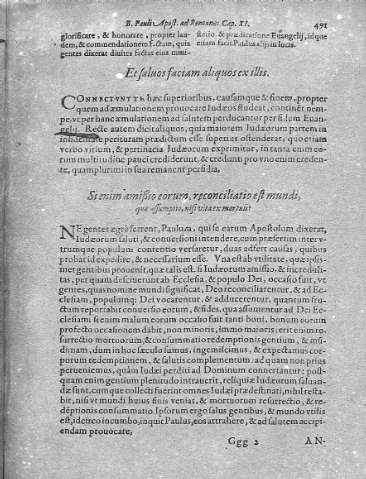 B. Pauli Apost. ad Romanos Cap. XI. 491
glorificare, & honorare, propter lau-
dem, & commendationem factam, quia
gentes dicerat divites factas eius mini-
sterio, & prædicatione Euangelij, idque
etiam facit Paulus alijs in locis.
Et saluos faciam aliquos ex illis.
CONNECTVNTVR hæc superioribus, causamque & finem, propter
quem ad æmulationem prouocare Iudæos studeat, continet nem-
pe, vt per hanc æmulationem ad salutem perducantur per fidem Euan-
gelij. Recte autem dicit aliquos, quia maiorem Iudæorum partem in
infidelitate perituram prædictum esse superius ostenderat, quo etiam
verbo virium, & pertinacia Iudæorum exprimitur, in tanta enim eo-
rum multitudine pauci crediderunt, & credunt pro vno enim creden-
te, quamplurimi in sea remanent perfidia.
Si enim amissio eorum, reconciliatio est mundi,
quæ assumptio, nisi vita ex mortuis?
NE gentes ægrè ferrent, Paulum, qui se earum Apostolum dixerat,
Iudæorum saluti, & conuersioni intendere, cum præsertim inter v-
trumque populum contentio versaretur, duas adfert causas, quibus
probat id expedite, & necessarium esse. Vna est ab vtilitate, quæ ipsis-
met gentibus prouenit, quæ talis est. si Iudæorum amissio, & incredili-
tas, per quam desciuerunt ab Ecclesia, & populo Dei, occasio fuit, vt
gentes, quas nomine mundi significat, Deo reconciliarentur, & ad Ec-
clesiam, populumq; Dei vocarentur, & adducerentur, quantum fru-
ctum reportabit conuersio eorum, & fides, qua assumentur ad Dei Ec-
clesiam? si enim malum eorum occasio fuit tanti boni, bonum eorum
profecto occasionem dabit, non minoris, immo maioris, erit enim re-
surrectio mortuorum, & consummatio redemptionis gentium, & mū-
di, nam, dum in hoc seculo sumus, ingemiscimus, & expectamus cor-
porum redemptionem, & salutis complementum, ad quam non prius
perueniemus, quàm Iudæi perditi ad Dominum conuertantur: post-
quam enim gentium plenitudo intrauerit, reliquiæ Iudæorum saluan-
dæ sunt, cumque collecti fuerint omnes Iudæi prædestinati, nihil resta-
bit, nisi vt mundi huius finis veniat, & mortuorum resurrectio, & re-
dēptionis consummatio. Ipsorum ergo salus gentibus, & mundo vtilis
est, ideirco incumbo, inquit Paulus, eos attrahere, & ad salutem accipi-
endam prouocate,
Ggg 2 AN-